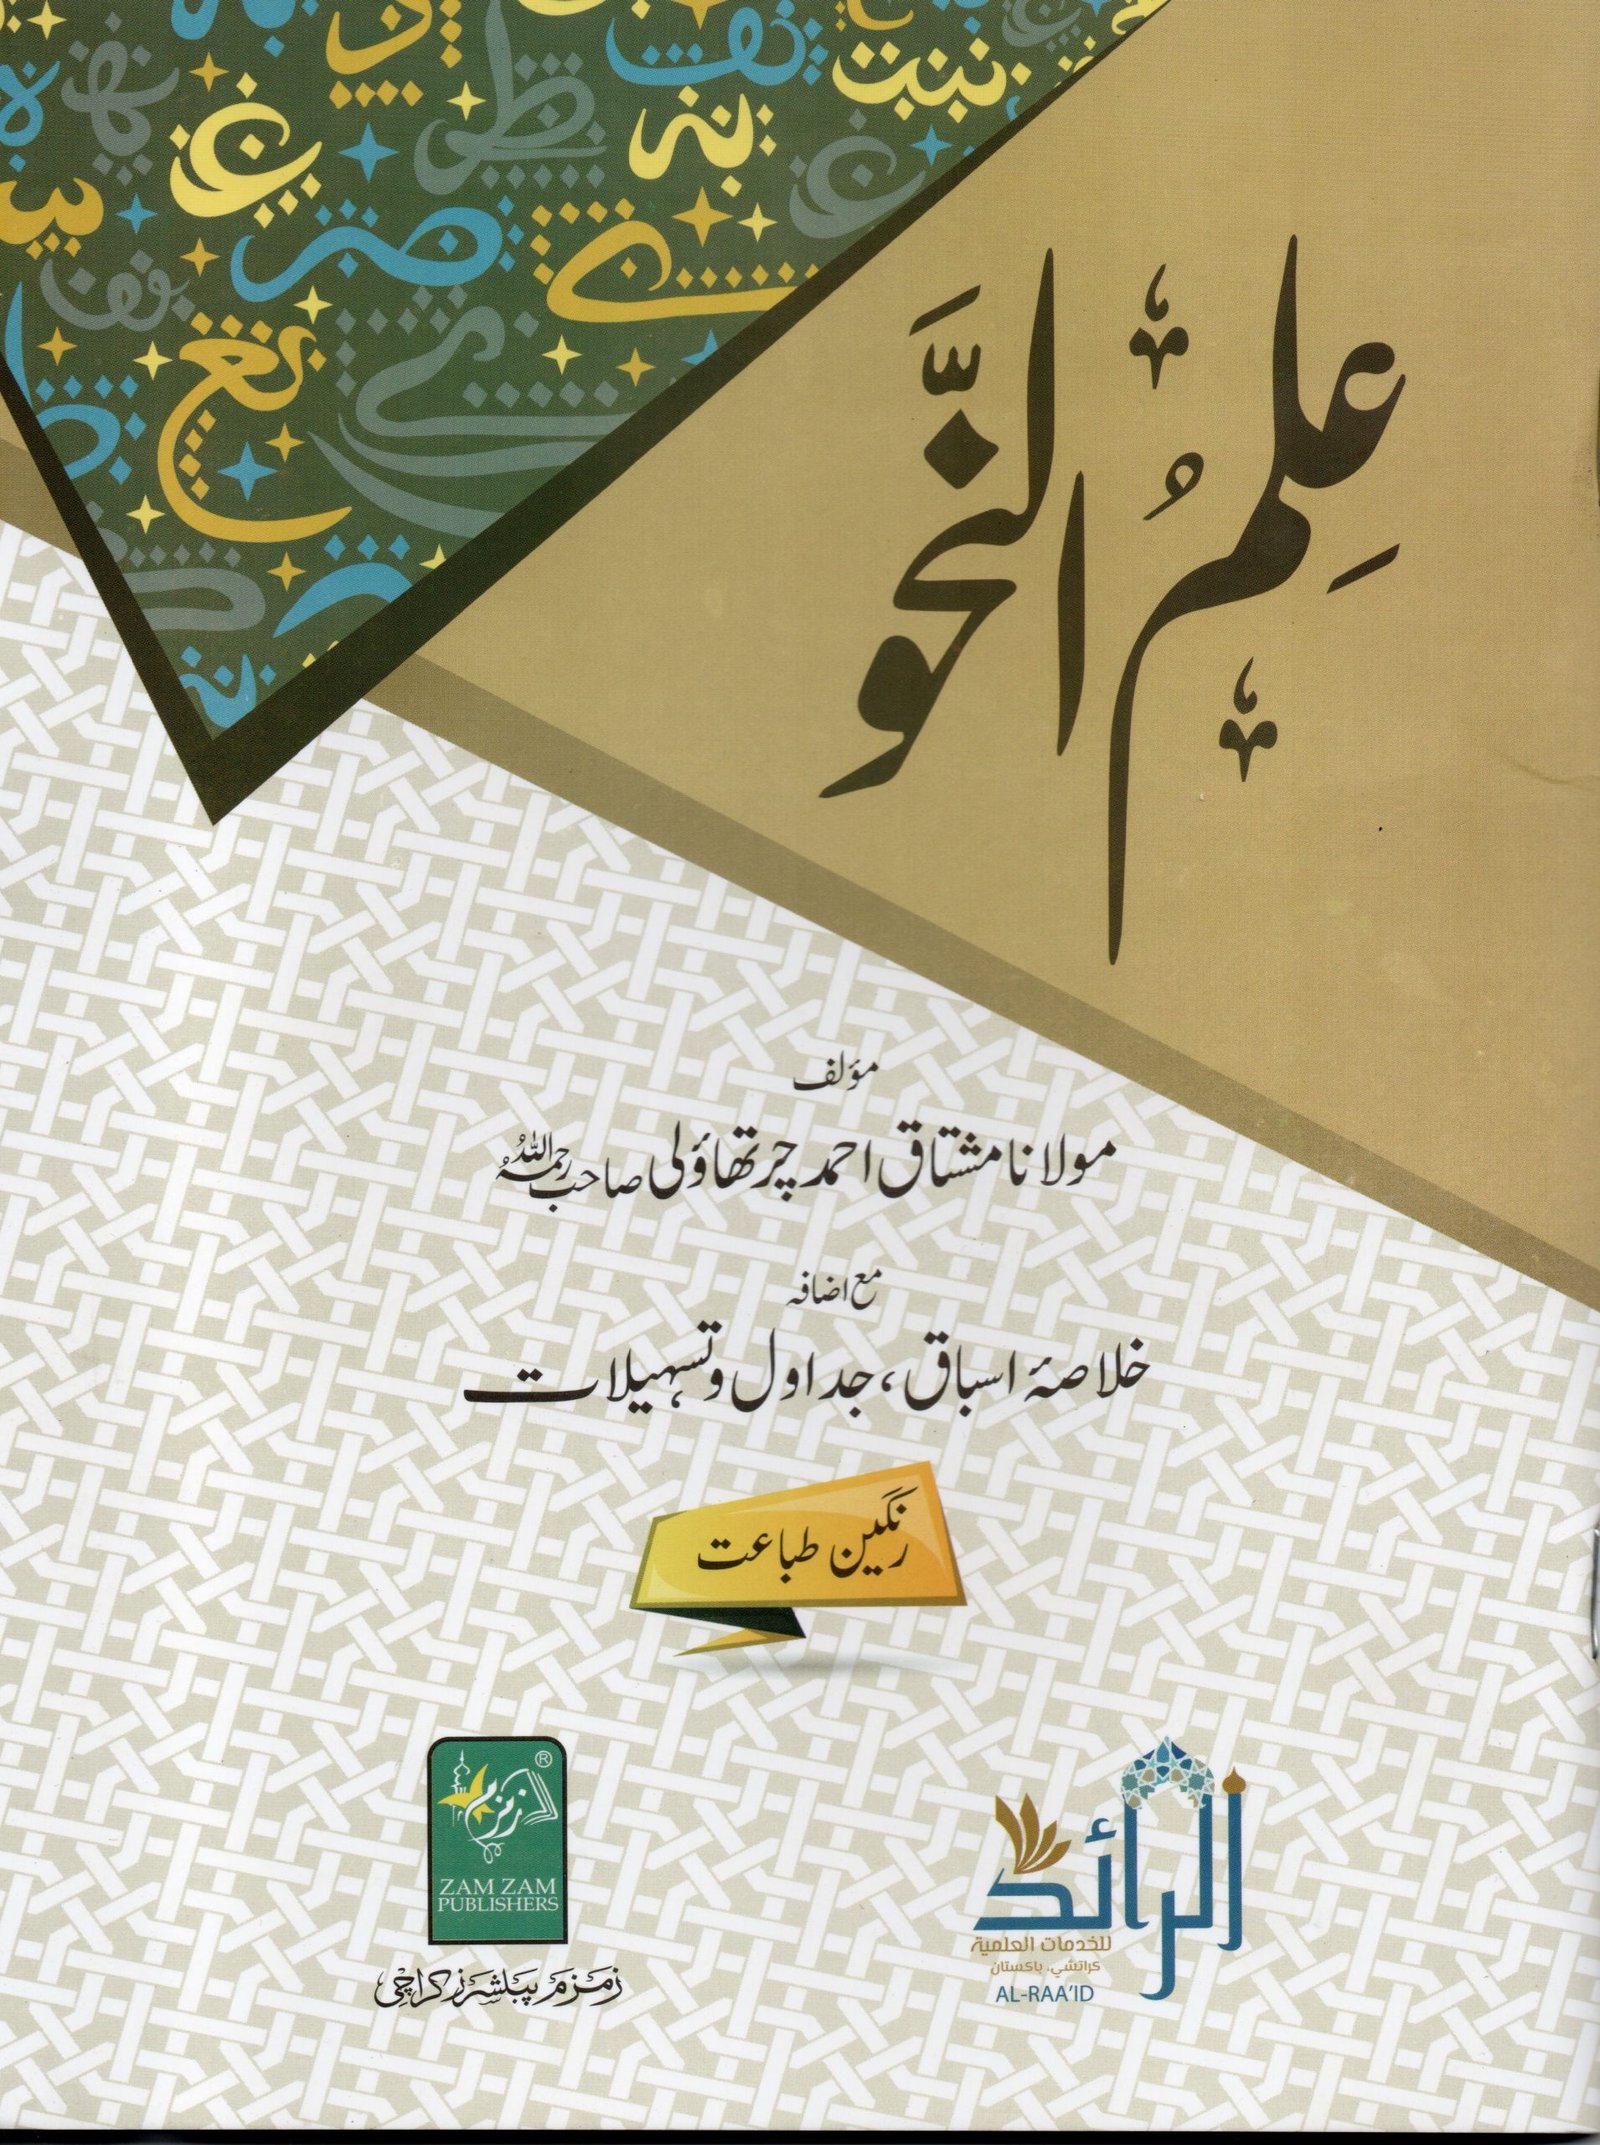 عِلمُ النَّحو
مؤلف
مولانا مشتاق احمد چرتھاؤلی صاحب رحمہ اللہ
مع اضافہ
خلاصۂ اسباق، جداول و تسہیلات
رنگین طباعت
زمزم
®
ZAM ZAM
PUBLISHERS
زمزم پبلشرز کراچی
الرائد
للخدمات العلمية
كراتشي، باكستان
AL-RAA'ID